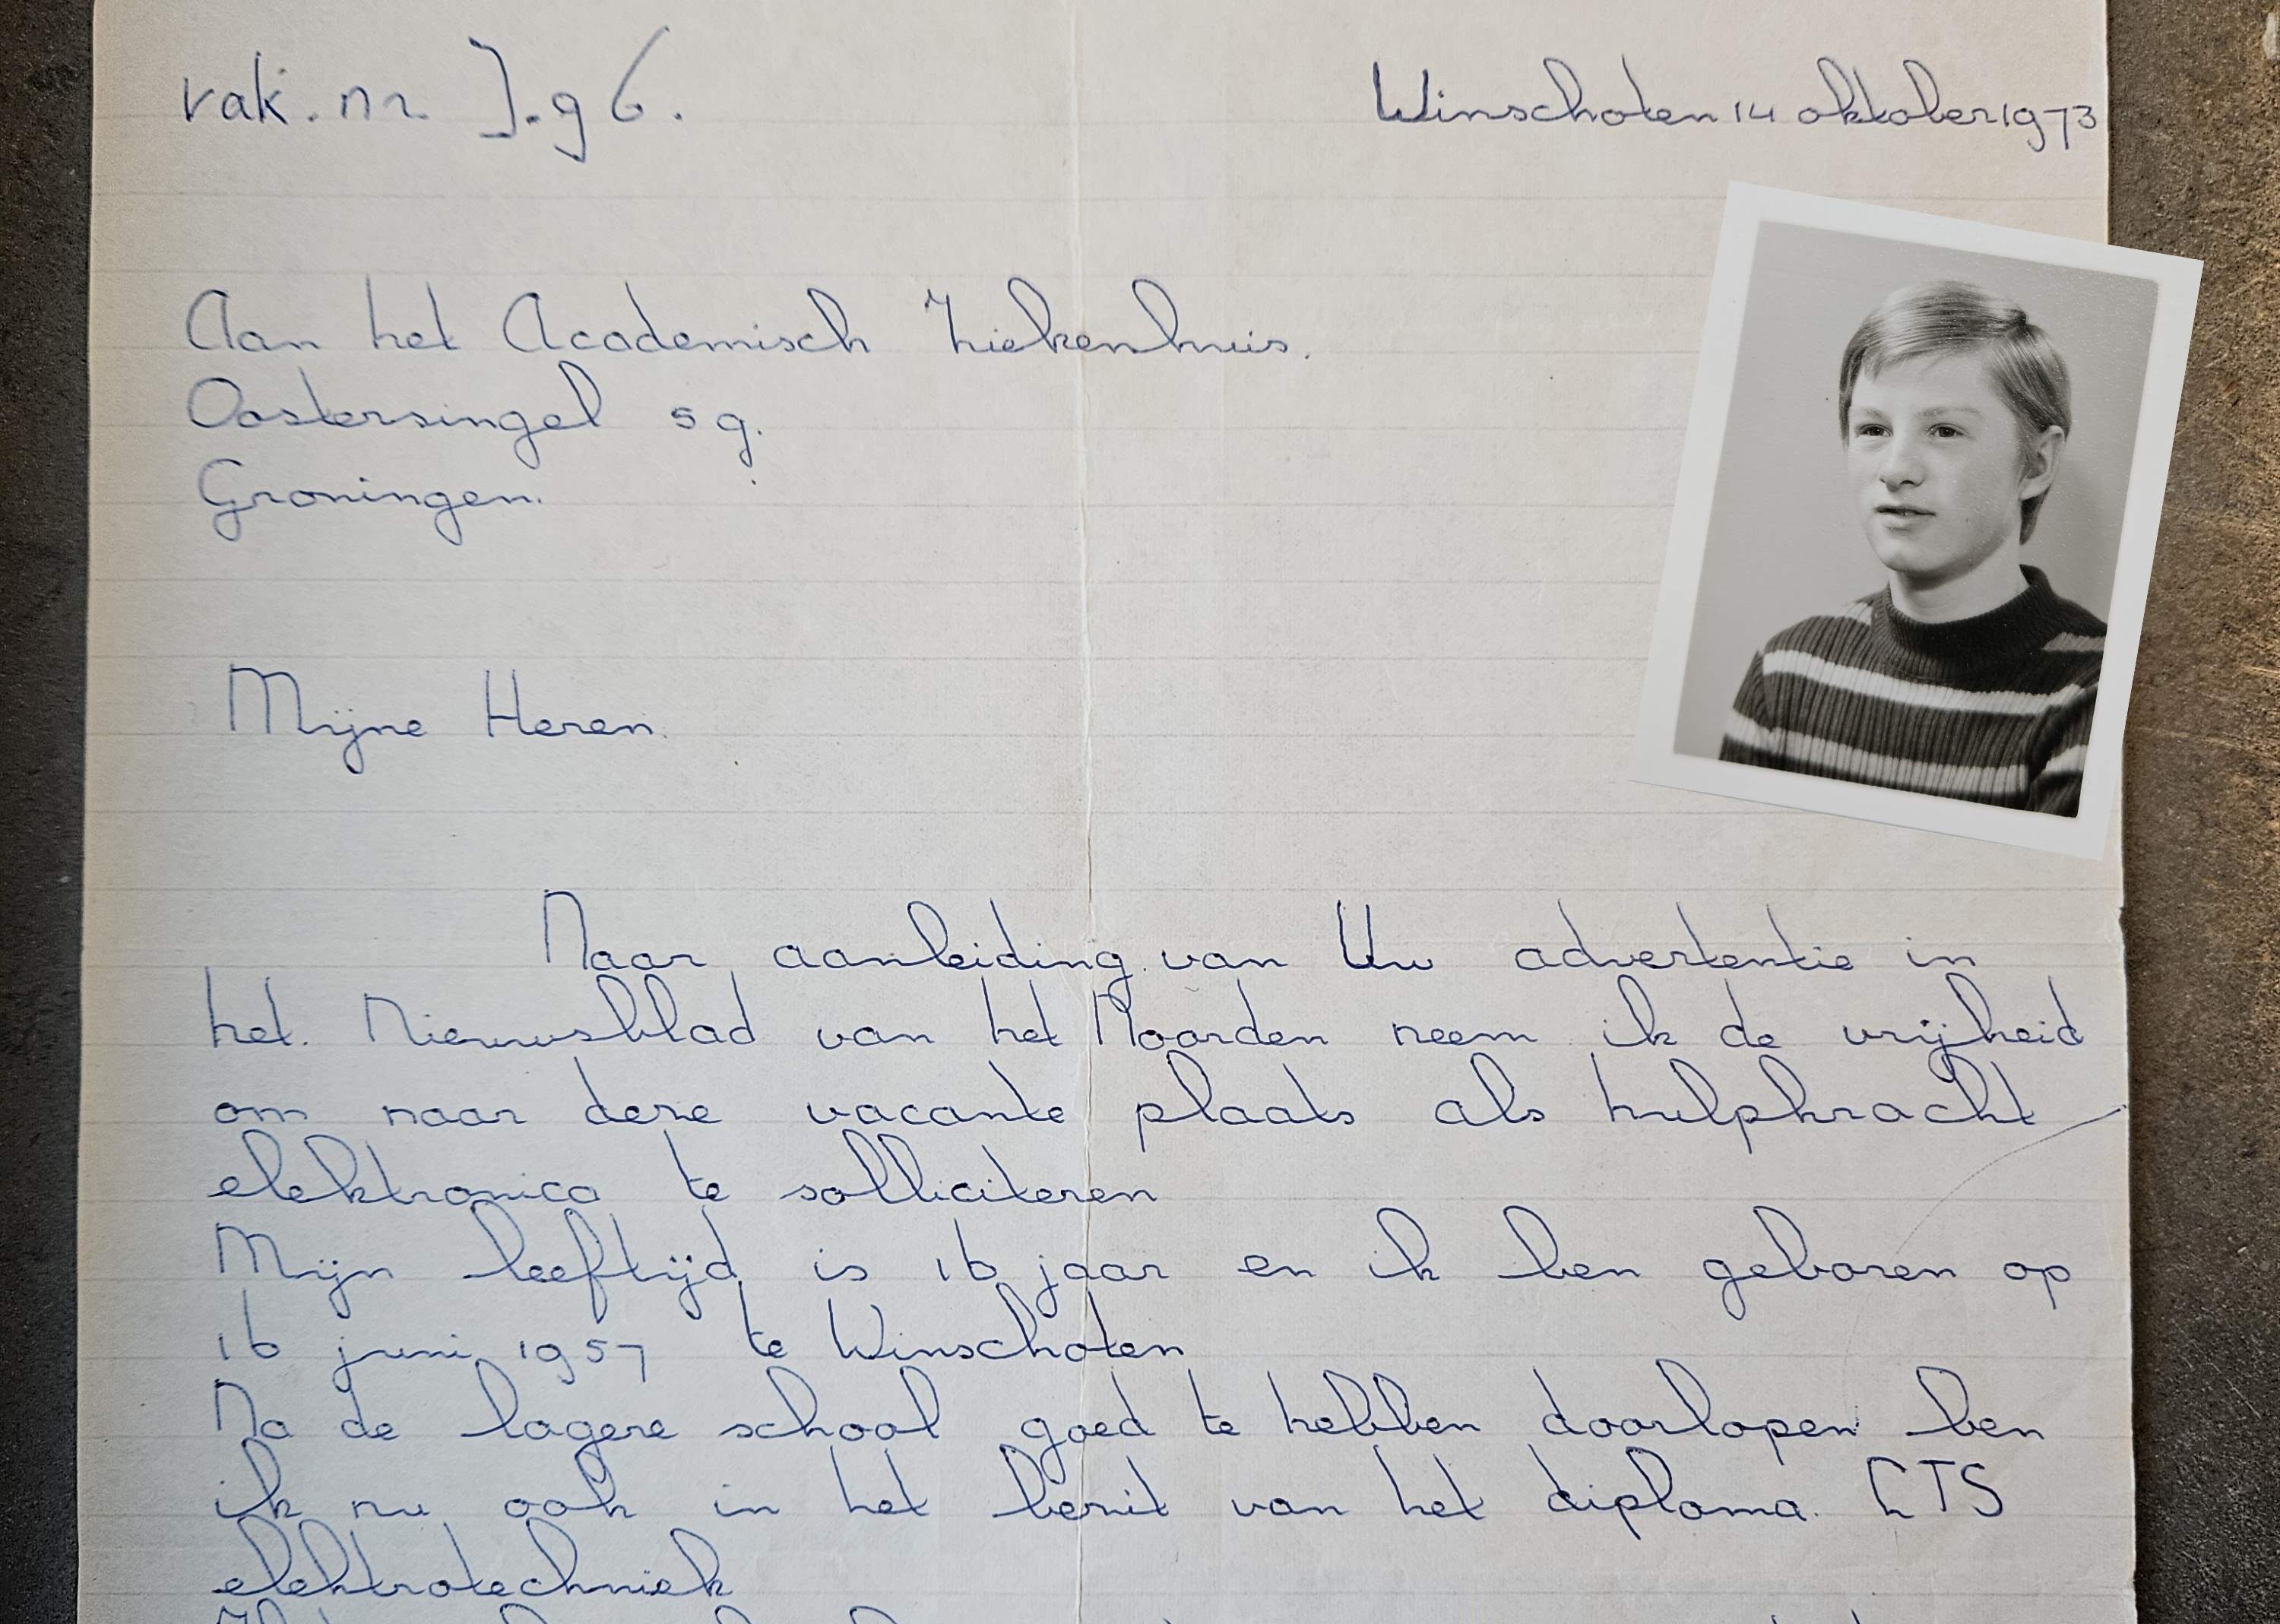 vak. nr. J.g6.
Winschoten 14 oktober 1973
Aan het Academisch Ziekenhuis.
Oostersingel 59.
Groningen.
Mijne Heren.
Naar aanleiding van Uw advertentie in
het Nieuwsblad van het Noorden neem ik de vrijheid
om naar deze vacante plaats als hulpkracht
elektronica te solliciteren
Mijn leeftijd is 16 jaar en ik ben geboren op
16 juni 1957 te Winschoten
Na de lagere school goed te hebben doorlopen ben
ik nu ook in het bezit van het diploma LTS
elektrotechniek